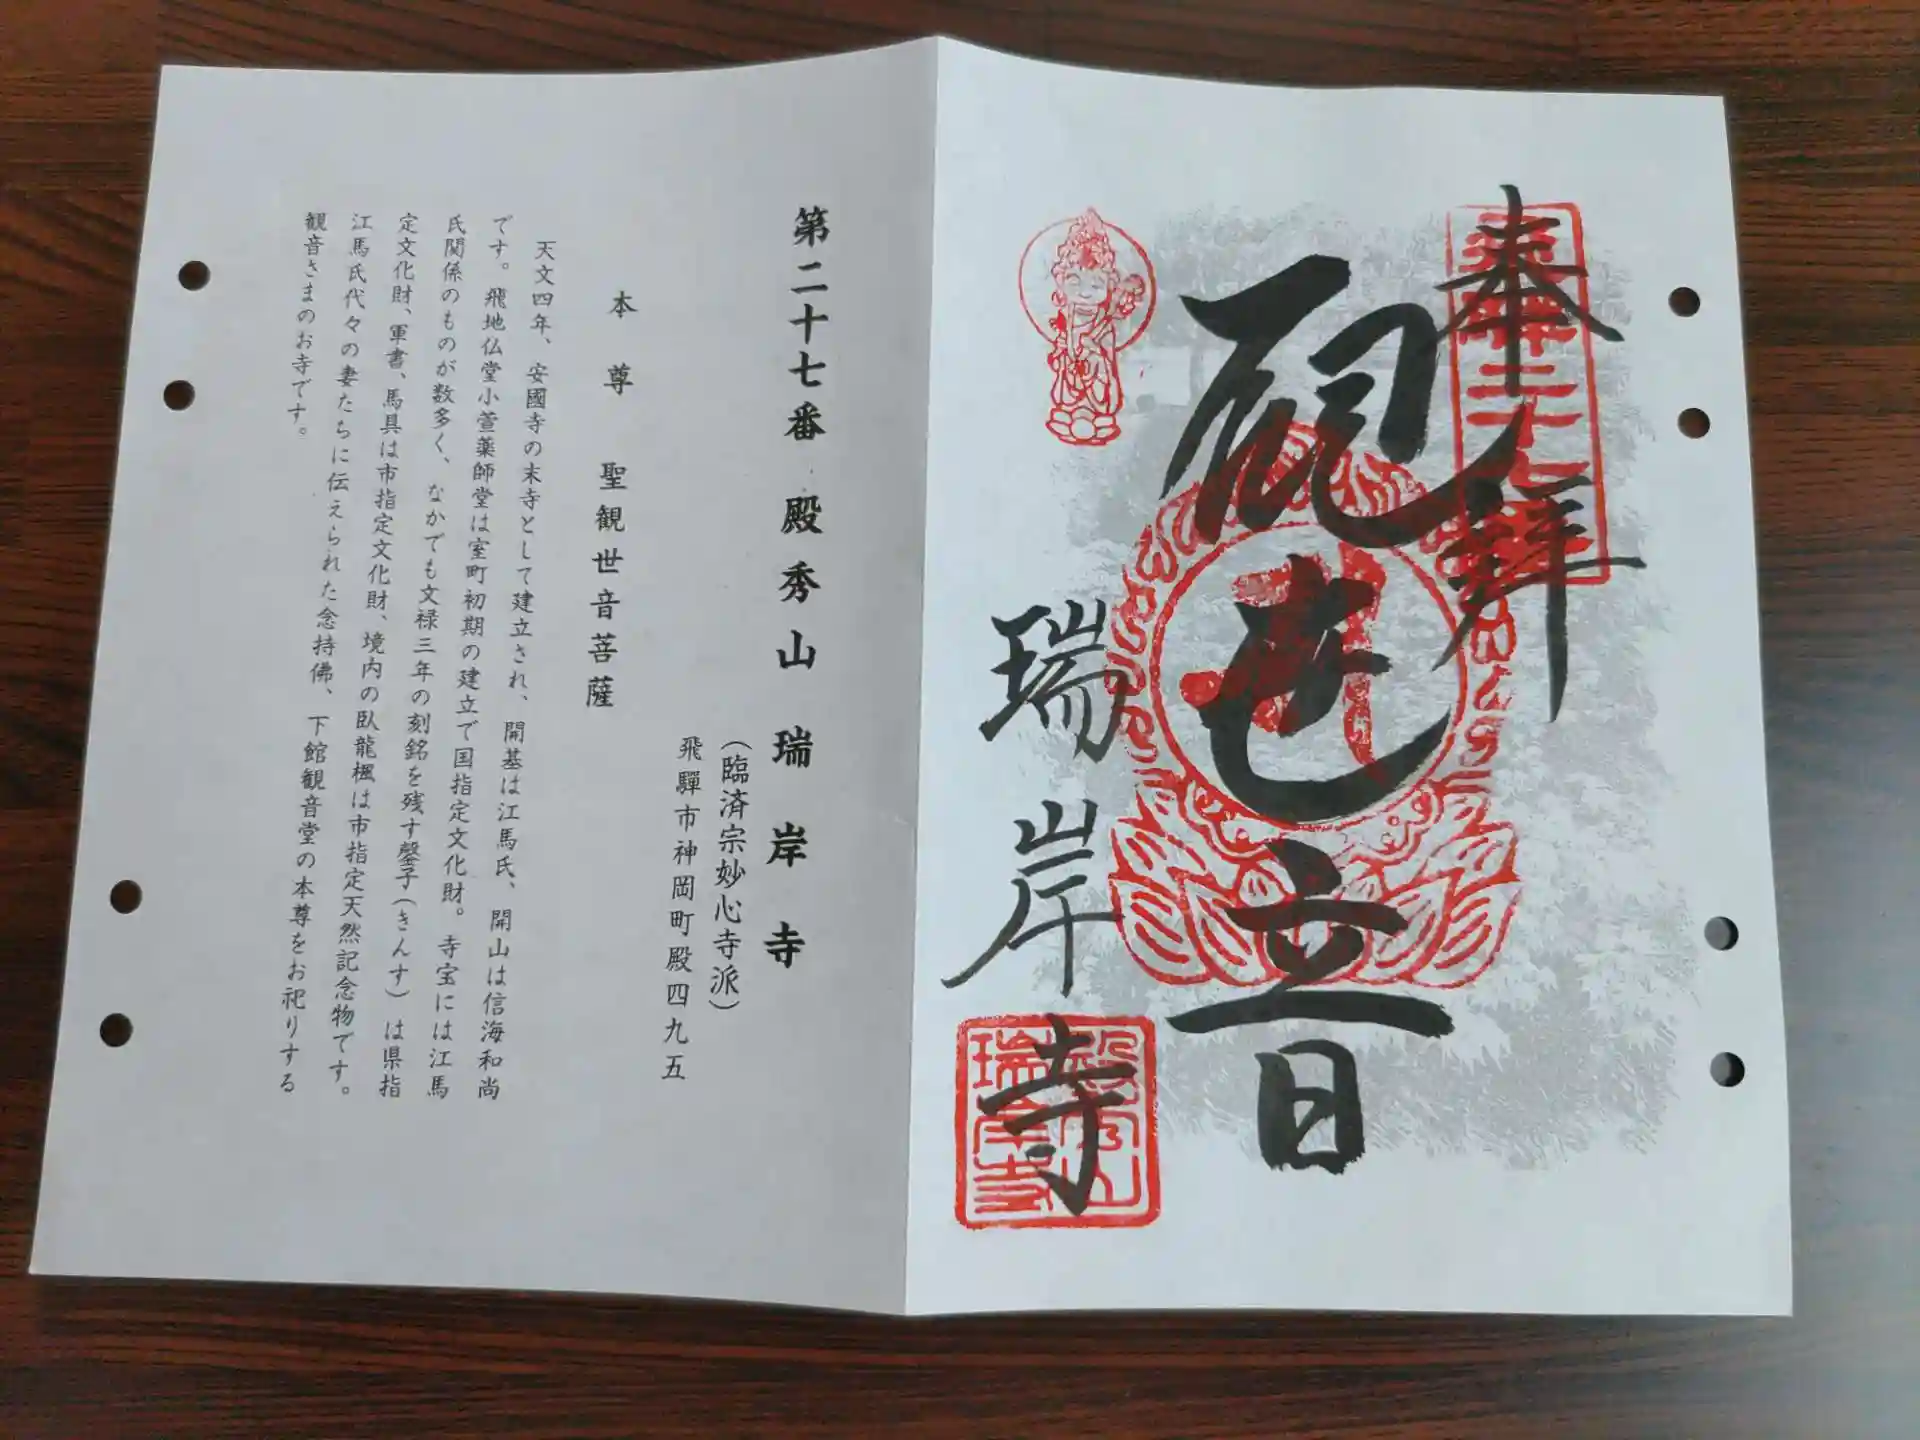 奉拝
観世音
瑞岸寺
第二十七番 殿秀山 瑞岸寺
(臨済宗妙心寺派)
飛驒市神岡町殿四九五
本尊 聖観世音菩薩
天文四年、安國寺の末寺として建立され、開基は江馬氏、開山は信海和尚
です。飛地仏堂小萱薬師堂は室町初期の建立で国指定文化財。寺宝には江馬
氏関係のものが数多く、なかでも文禄三年の刻銘を残す鏧子(きんす)は県指
定文化財、軍書、馬具は市指定文化財、境内の臥龍楓は市指定天然記念物です。
江馬氏代々の妻たちに伝えられた念持佛、下館観音堂の本尊をお祀りする
観音さまのお寺です。